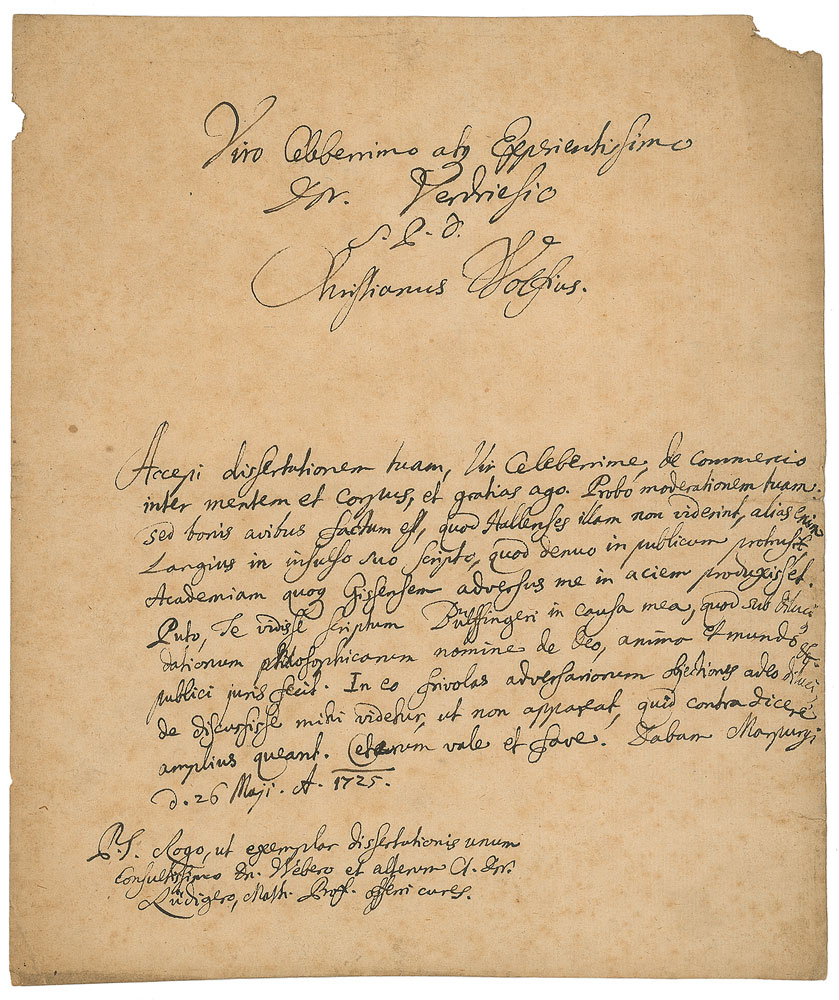 Viro Celeberrimo atq Experientissimo
Dn. Verdriesio
S. P. d.
Christianus Wolfius.
Accepi dissertationem tuam, Vir Celeberrime, de commercio
inter mentem et corpus, et gratias ago. Probo moderationem tuam:
sed bonis avibus factum est, quod Hallenses illam non viderint, alias enim
Langius in insulso suo scripto, quod denuo in publicum protrusit
Academiam quoq Gissensem adversus me in aciem produxisset.
Puto, Te vidisse scriptum Bulffingeri in causa mea, quod sub diluci
dationum philosophicarum nomine de Deo, anima et mundo
publici juris fecit. In eo frivolas adversariorum objectiones adeo diluci
de discussisse mihi videtur, ut non appareat, quid contra dicere
amplius queant. Ceterum vale et fave. Dabam Marpurgi
d. 26 Maji. A. 1725.
P.S. Rogo, ut exemplar dissertationis unum
Consultissimo Dn. Webero et alterum Cl. Dn.
Rüdigero, Math. Prof. offerri cures.